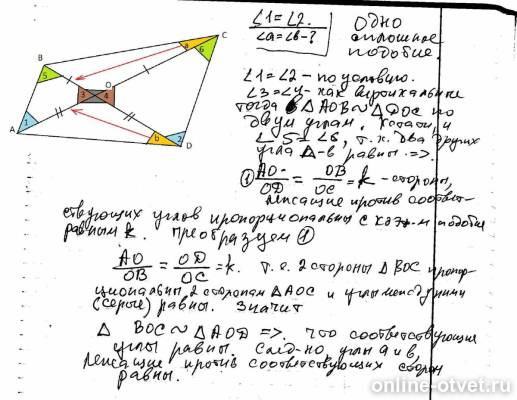 ∠1=∠2.
∠a=∠b-?
Одно
сплошное
подобие.
B
C
A
D
O
5
a
6
3
4
1
b
2
∠1=∠2 - по условию.
∠3=∠4 - как вертикальные
тогда △AOB ~ △DOC по
двум углам. Кстати, и
∠5=∠6, т.к. два других
угла △-в равны =>
① AO/OD = OB/OC = k - стороны,
лежащие против соответ-
ствующих углов пропорциональны с коэф-м подобия
равным k. Преобразуем ①
AO/OB = OD/OC = k. Т.е. 2 стороны △BOC пропор-
циональны 2 сторонам △AOC и углы между ними
(серые) равны. Значит
△ BOC ~ △AOD =>. что соответствующие
углы равны. След-но углы a и b,
лежащие против соответствующих сторон
равны.
online-otvet.ru